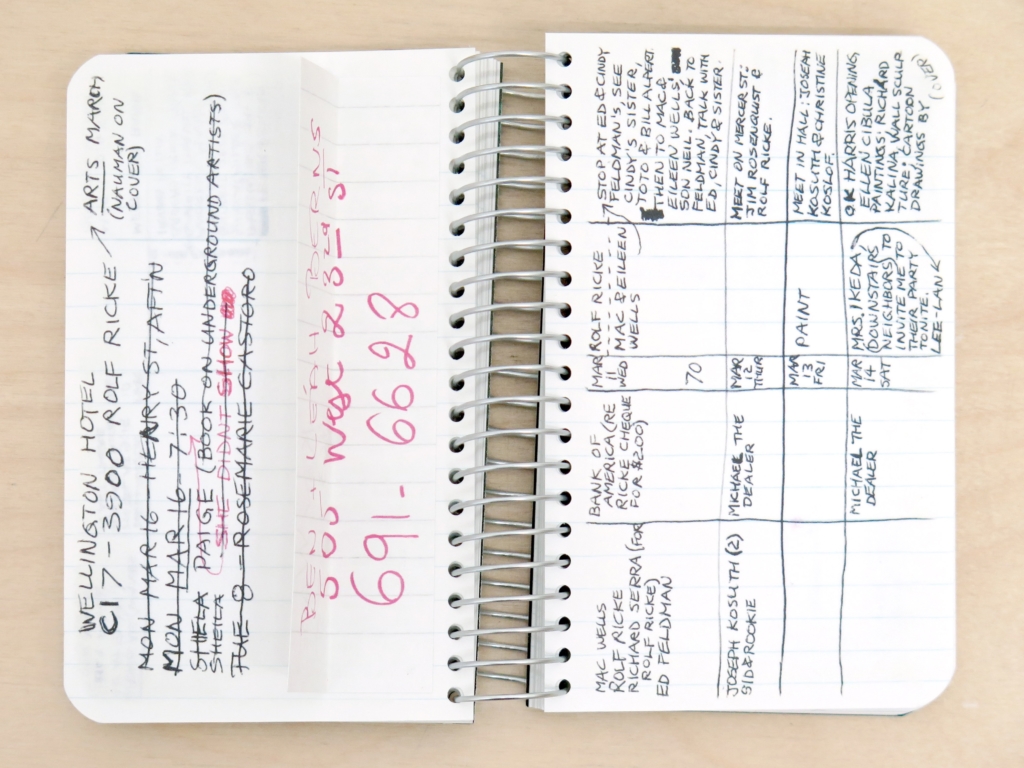 WELLINGTON HOTEL
CI 7-3900 ROLF RICKE ↗ ARTS MARCH
(NAUMAN ON
COVER)
MON MAR 16 - HENRY ST, AFT'N
MON MAR 16 - 7:30
SHIELA PAIGE (BOOK ON UNDERGROUND ARTISTS)
SHEILA (SHE DIDNT SHOW
TUE 8 - ROSEMARIE CASTORO
BEN + LEAH BERNS
500 West 23rd St
691-6628
MAC WELLS
ROLF RICKE
RICHARD SERRA (FOR
ROLF RICKE)
ED FELDMAN
BANK OF
AMERICA (RE
RICKE CHEQUE
FOR $200)
MAR
11
WED
70
ROLF RICKE
MAC & EILEEN
WELLS
STOP AT ED & CINDY
FELDMAN'S, SEE
CINDY'S SISTER,
TOTO & BILL ALPERT.
THEN TO MAC &
EILEEN WELLS'
SON NEIL. BACK TO
FELDMAN, TALK WITH
ED, CINDY & SISTER.
JOSEPH KOSUTH (2)
SID & ROOKIE
MICHAEL THE
DEALER
MAR
12
THUR
MEET ON MERCER ST:
JIM ROSENQUIST &
ROLF RICKE.
MAR
13
FRI
PAINT
MEET IN HALL: JOSEPH
KOSUTH & CHRISTINE
KOSLOF.
MICHAEL THE
DEALER
MAR
14
SAT
MRS. IKEDA
(DOWNSTAIRS
NEIGHBORS) TO
INVITE ME TO
THEIR PARTY
TOVE. ILAN
LEE-
OK HARRIS OPENING,
ELLEN CIBULA
PAINTINGS: RICHARD
KALINA WALL SCULP
TURE; CARTOON
DRAWINGS BY
(OVER)